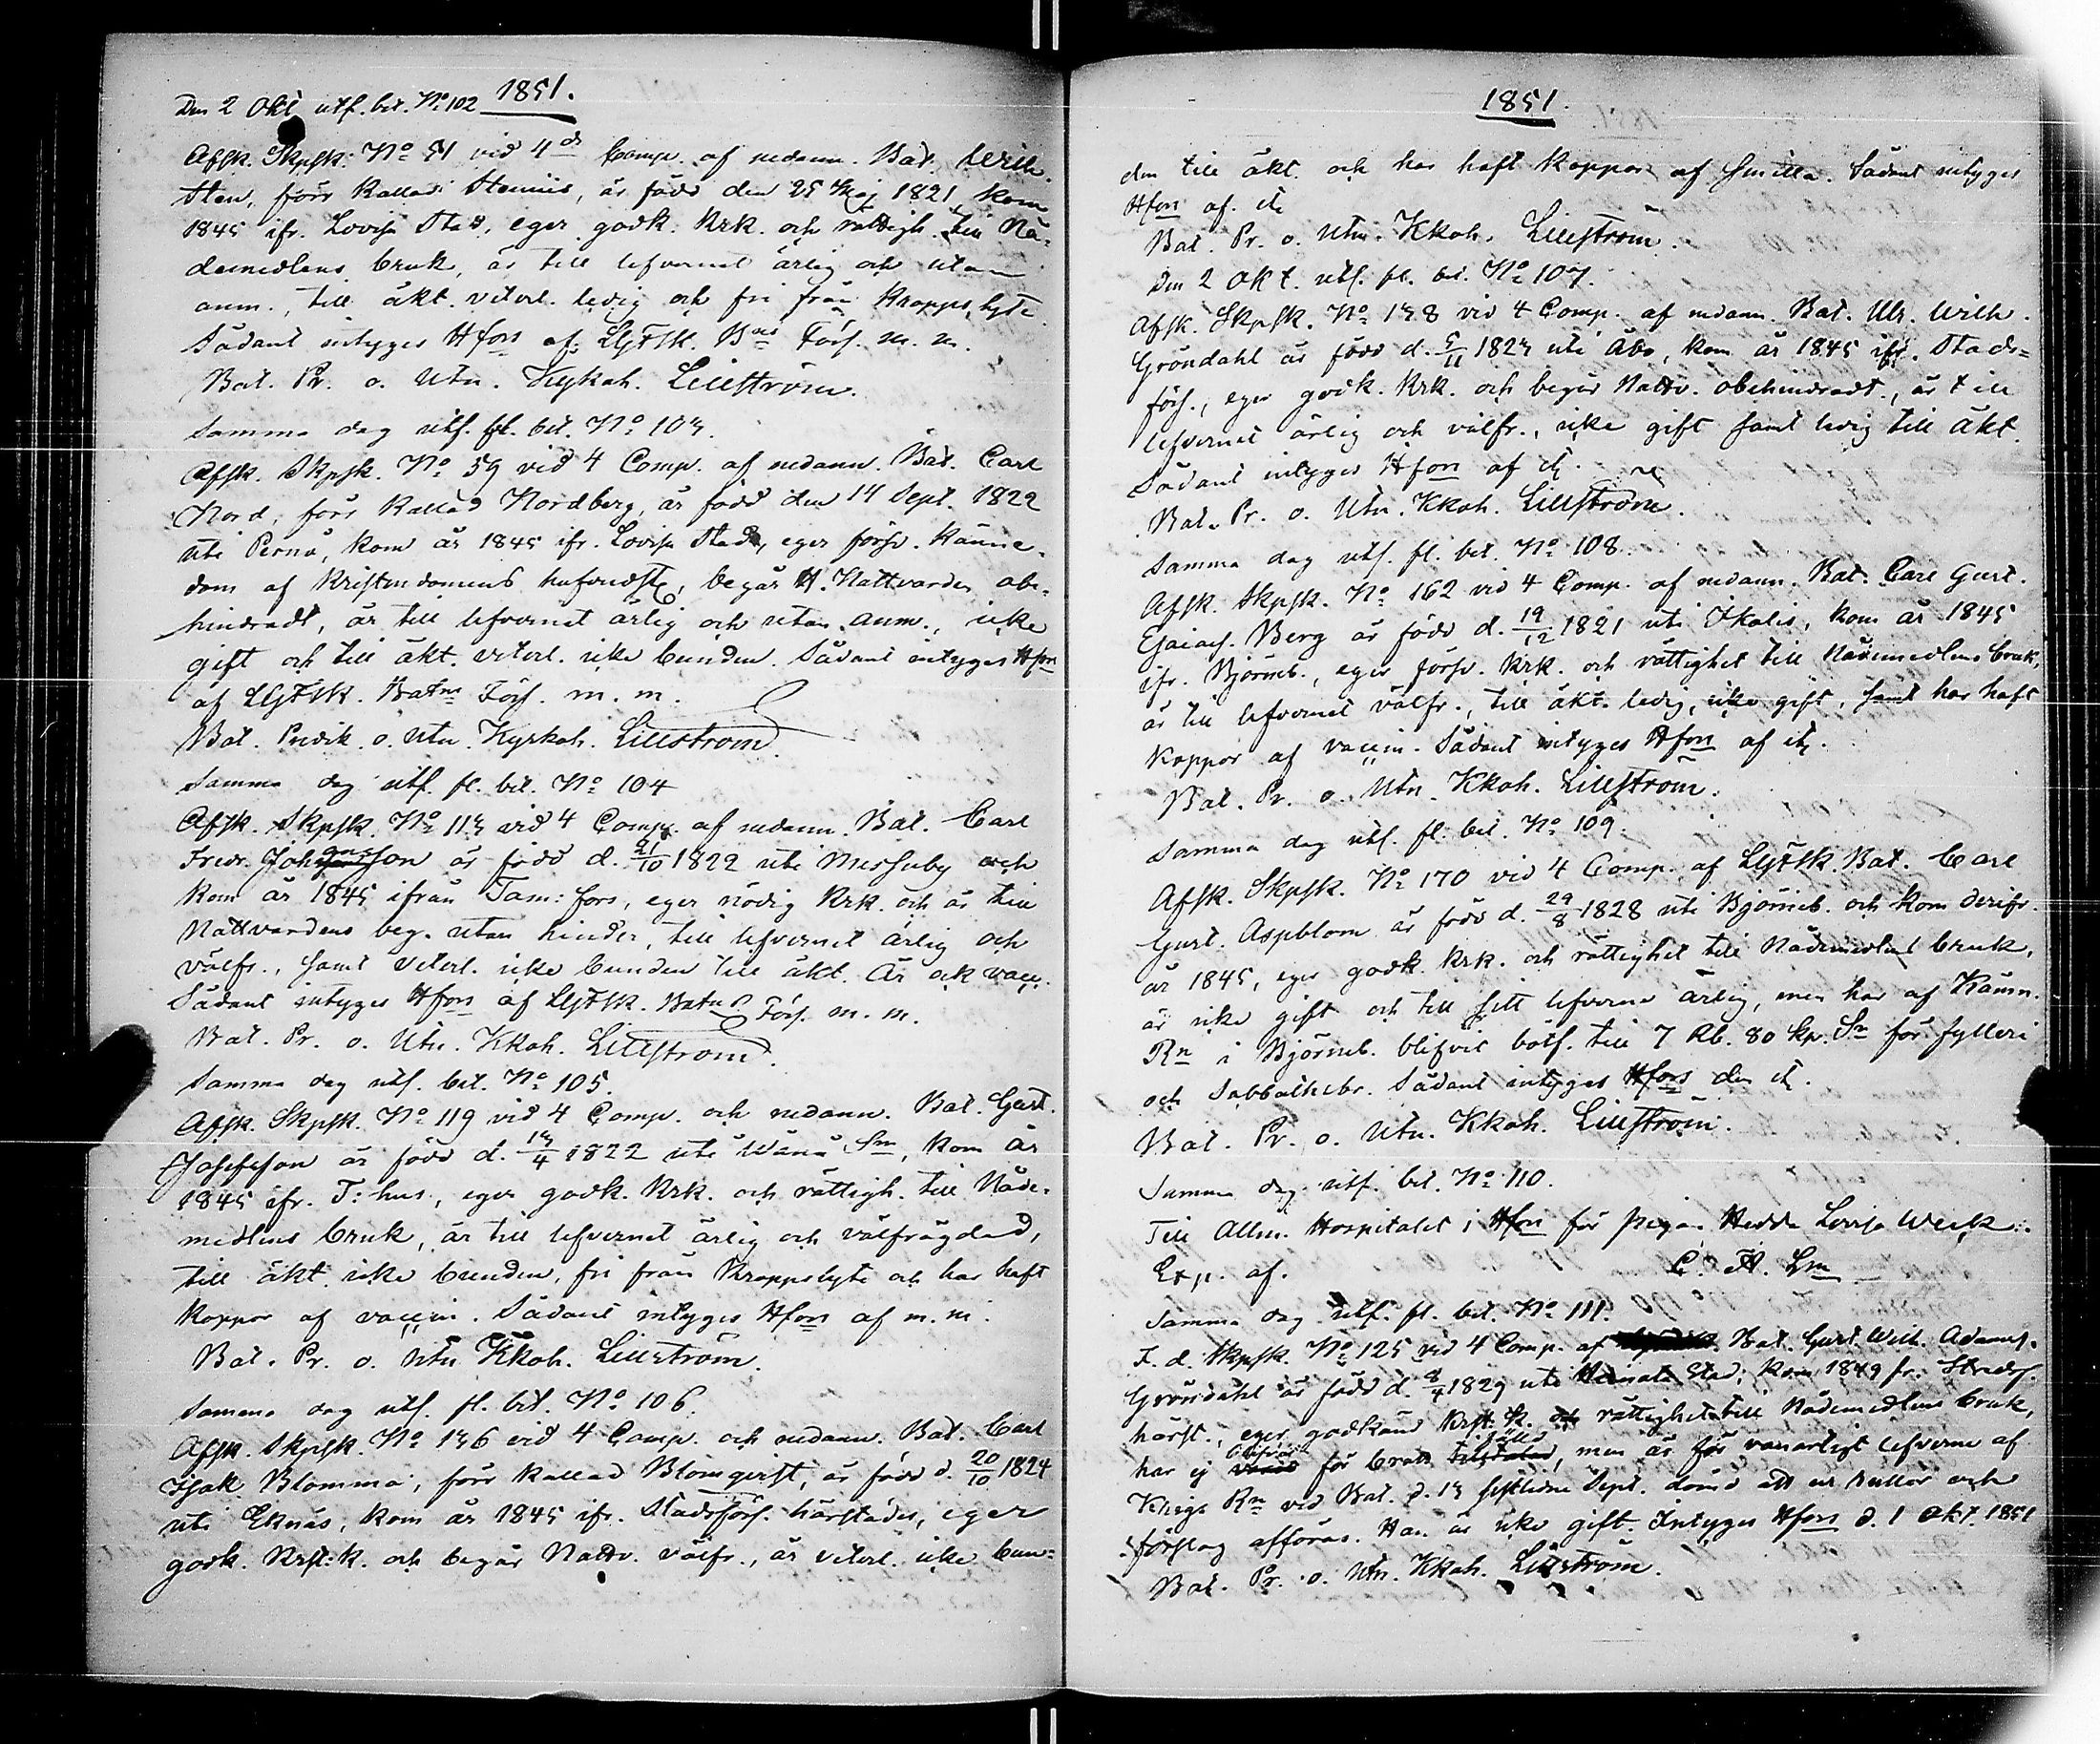 1851.
Den 2 Okt utf. bet. No 102
Afsk. Skpsk. No 51 vid 4de Comp. af nedann. Bat. Wilh.
Sten, förr kallad Stenius, är född den 25 Maj 1821, kom
1845 ifr. Lovisa Stad, eger godk. Krk. och rättigh. till Nå-
demedlens bruk, är till lefvernet ärlig och utan
anm., till äkt. veterl. ledig och fri från kroppslyte.
Sådant intygas Hfors af Förs. m. m.
Bat. Pr. o. Utn. Kyrkoh. Lillström.
Samma dag utf. fl. bet. No 103.
Afsk. Skpsk. No 59 vid 4 Comp. af nedann. Bat. Carl
Nord, förr kallad Nordberg, är född den 14 Sept. 1822
uti Perno, kom år 1845 ifr. Lovisa Stad, eger försv. känne-
dom af kristendomens hufvudst, begår H. Nattvarden obe-
hindradt, är till lefvernet ärlig och utan anm., icke
gift och till äkt. veterl. icke bunden. Sådant intygas Hfors
af Batns Förs. m. m.
Bat. Predik. o. Utn. Kyrkoh. Lillström.
Samma dag utf. fl. bet. No 104
Afsk. Skpsk. No 113 vid 4 Comp. af nedann. Bat. Carl
Fredr. Johansson är född d. 21/10 1822 uti Messuby och
kom år 1845 ifrån Tam:fors, eger nödig Krk. och är till
Nattvardens beg. utan hinder, till lefvernet ärlig och
välfr., samt veterl. icke bunden till äkt. Är ock vacc.
Sådant intygas Hfors af Batns Förs. m. m.
Bat. Pr. o. Utn. Kkoh. Lillström.
Samma dag utf. bet. No 105.
Afsk. Skpsk. No 119 vid 4 Comp. och nedann. Bat. Gust.
Josefsson är född d. 13/4 1822 uti Wånå Sn, kom år
1845 ifr. T:hus, eger godk. Krk. och rättigh. till Nåde-
medlens bruk, är till lefvernet ärlig och välfrägdad,
till äkt. icke bunden, fri från kroppslyte och har haft
koppor af vaccin. Sådant intygas Hfors af m. m.
Bat. Pr. o. Utn Kkoh. Lillström.
Samma dag utf. fl. bet. No 106
Afsk. Skpsk. No 136 vid 4 Comp. och nedann. Bat. Carl
Isak Blomma, förr kallad Blomqvist, är född d. 20/10 1824
uti Eknäs, kom år 1845 ifr. Stadsförs. härstädes, eger
godk. Krst:k. och begår Nattv. välfr., är veterl. icke bun-
1851.
den till äkt. och har haft koppor af Smitta. Sådant intygas
Hfors af etc
Bat. Pr. o. Utn. Kkoh. Lillström.
Den 2 Okt. utf. fl. bet. No 107.
Afsk. Skpsk. No 138 vid 4 Comp. af nedann. Bat. Ulr. Wilh.
Gröndahl är född d. 5/11 1823 uti Åbo, kom år 1845 ifr. Stads-
förs., eger godk. Krk. och begår Nattv. obehindradt., är till
lefvernet ärlig och välfr., icke gift samt ledig till äkt.
Sådant intygas Hfors af etc.
Bat. Pr. o. Utn. Kkoh. Lillström.
Samma dag utf. fl. bet. No 108.
Afsk. Skpsk. No 162 vid 4 Comp. af nedann. Bat. Carl Gust.
Esaias. Berg är född d. 19/12 1821 uti Ikalis, kom år 1845
ifr. Björneb., eger försv. Krk. och rättighet till Nådemedlens bruk,
är till lefvernet välfr., till äkt. ledig, icke gift, samt har haft
koppor af vaccin. Sådant intygas Hfors af etc.
Bat. Pr. o. Utn. Kkoh. Lillström.
Samma dag utf. fl. bet. No 109
Afsk. Skpsk. No 170 vid 4 Comp. af Bat. Carl
Gust. Aspblom är född d. 29/8 1828 uti Björneb. och kom derifr.
år 1845, eger godk. Krk. och rättighet till Nådemedlens bruk,
är icke gift och till sitt lefverne ärlig, men har af Kämn.
Rn i Björneb. blifvit bötf. till 7 Rb. 80 kp. Sr för fylleri
och Sabbathsbr. Sådant intygas Hfors den etc.
Bat. Pr. o. Utn. Kkoh. Lillström.
Samma dag utf. bet. No 110.
Till Allm. Hospitalet i Hfors för pigan Hedda Lovisa Weck.
Exp. af. C. A. Lm
Samma dag utf. fl. bet. No 111.
F. d. Skpsk. No 125 vid 4 Comp. af Bat. Gust. Wilh. Adams.
Gröndahl är född d. 8/4 1829 uti Stad, kom 1849 fr. Stadsf.
härst., eger godkänd Krst. K. och rättighet till Nådemedlens bruk,
har ej blifvit för brott fälld, men är för vanartigt lefverne af
Krigs Rn vid Bat. d. 13 sistlidne Sept. dömd att ur rullor och
förslag afföras. Han är icke gift. Intygas Hfors d. 1 Okt. 1851
Bat. Pr. o. Utn. Kkoh. Lillström.